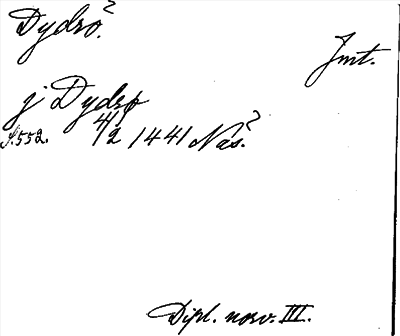 Dydrö?
Jmt.
j Dydrø
S. 552. 4/2 1441 Näs?
Dipl. norv. III.